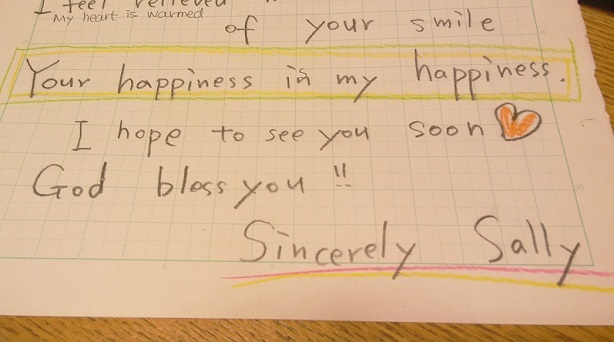 I feel relieved
My heart is warmed
of your smile
Your happiness is my happiness.
I hope to see you soon
God bless you !!
Sincerely Sally